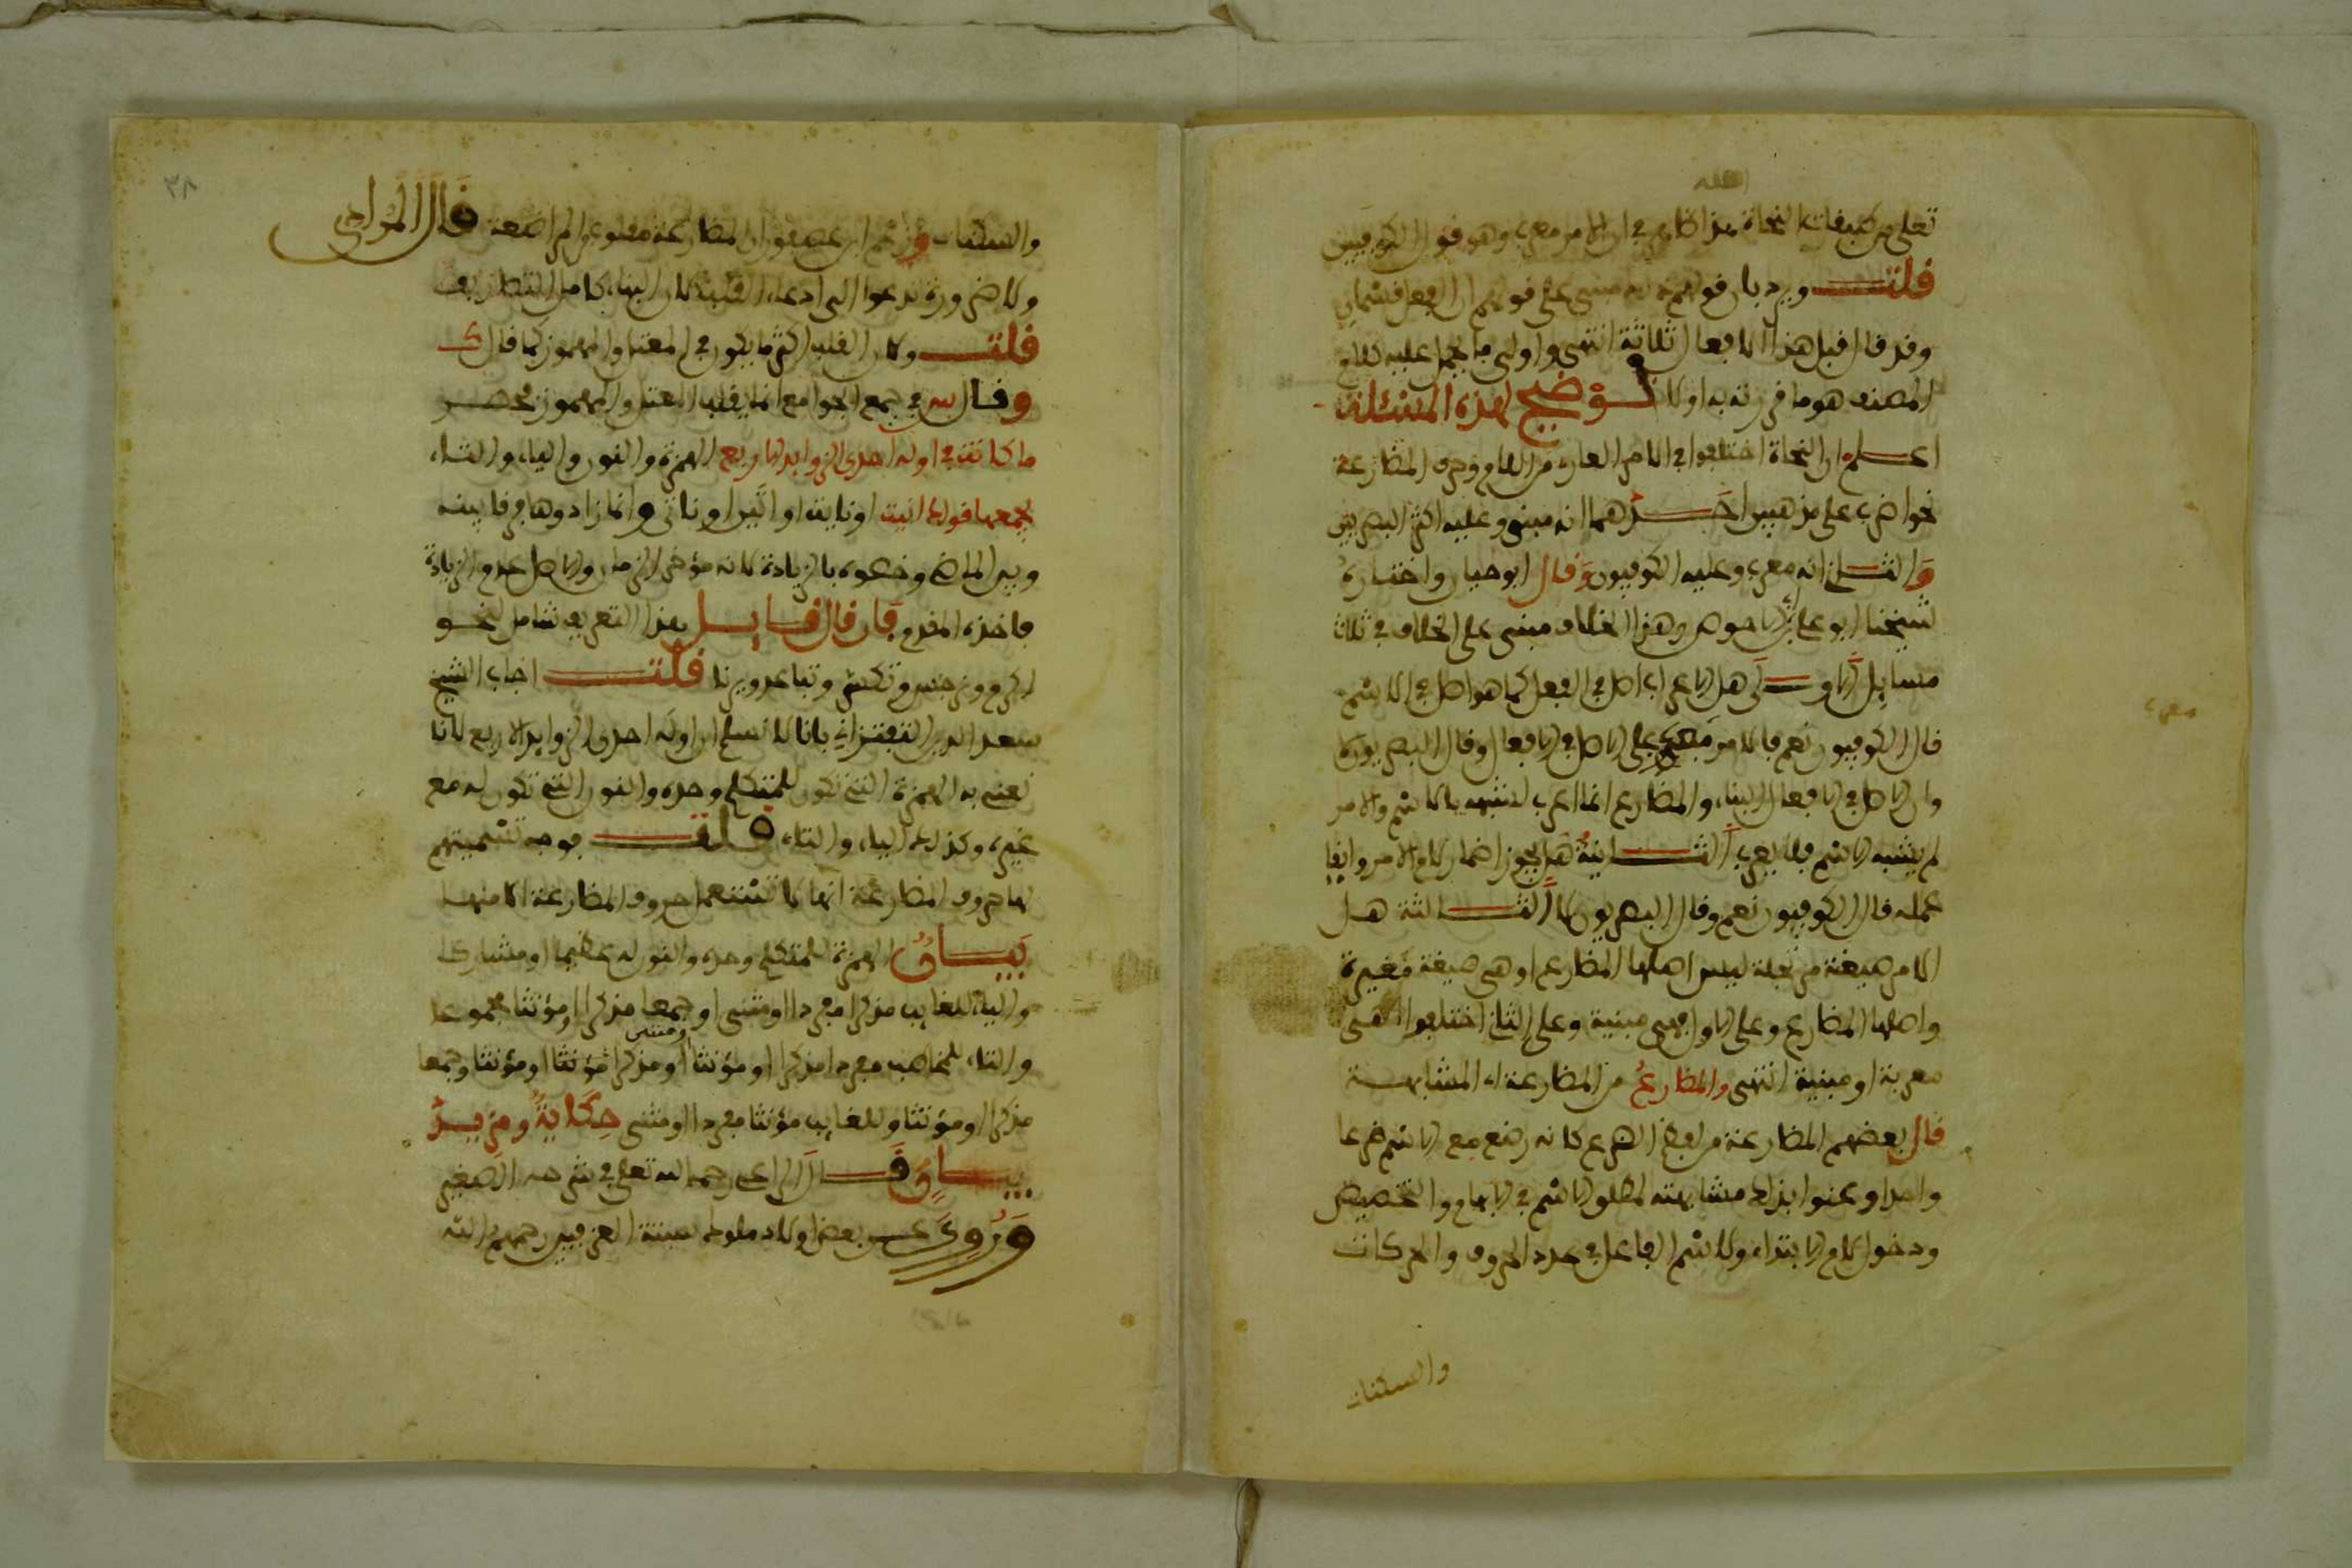 الله
تعلى من طبقات النحاة هذا ظاهر في ان الامر معرب وهو قول الكوفيين
قلت ويرد بان قولهم انه مبني على قولهم ان الفعل قسمان
وقد قال قبل هذا الافعال ثلاثة انتهى واولى ما يحمل عليه كلام
المصنف هو ما قررته به اولا توضيح لهذه المسئلة
اعلم ان النحاة اختلفوا في الامر العاري من اللام وحرف المضارعة
نحو اضرب على مذهبين احدهما انه مبني وعليه اكثر البصريين
والثاني انه معرب وعليه الكوفيون وقال ابو حيان واختاره
شيخنا ابو علي بن الاحوص وهذا الخلاف مبني على الخلاف في ثلاث
مسايل الاولى هل الاعراب اصل في الفعل كما هو اصل في الاسم
قال الكوفيون نعم فالامر على الاصل في الافعال وقال البصريون لا
وان الاصل في الافعال البناء والمضارع انما اعرب لشبهه بالاسم والامر
لم يشبه الاسم فلا يعرب الثانية هل يجوز اضمار لام الامر وابقا
عمله قال الكوفيون نعم وقال البصريون لا الثالثة هل
الامر صيغة مرتجلة ليس اصلها المضارع او هي صيغة مغيرة
واصلها المضارع وعلى الاول فهي مبنية وعلى الثاني اختلفوا اهي
معربة او مبنية انتهى والمضارع من المضارعة اي المشابهة
قال بعضهم المضارعة من لفظ الضرع كانه رضع مع الاسم ضرعا
واحدا وعنوا بذلك مشابهته لمطلق الاسم في الابهام والتخصيص
ودخول لام الابتداء وللاسم الفاعل في عدد الحروف والحركات
والسكنات
معرب
٣٨
والسكنات وزعم ابن عصفور ان المضارعة مقلوبة من المراضعة قال المرادي
ولا ضرورة تدعوا الى ادعاء القلب لان البناء كامل التصاريف
قلت ولان القلب اكثر ما يكون في المعتل والمهموز كما قال ك
وقال س في جمع الجوامع انما يقلب المعتل والمهموز
ما كانت في اوله احدى الزوايد الاربع الهمزة والنون والياء والتاء
يجمعها قولك انيت او نايت او اتين او ناتي وانما زادوها فرقا بينه
وبين الماضي وخصوه بالزيادة لانه مؤخر الزمان والاصل عدم الزيادة
فاخذه المقدم فان قال قايل هذا التعريف شامل لنحو
اكرم ونرجس وتكسر وتباعد ويرنا قلت اجاب الشيخ
سعد الدين التفتزاني بانا لا نسلم ان اوله احدى الزوايد الاربع لانا
نعني به الهمزة التي تكون للمتكلم وحده والنون التي تكون له مع
غيره وكذلك الياء والتاء قلت فوجه تسميتهم
لها حروف المضارعة انها لا تستعمل حروف المضارعة الا منها
بيان الهمزة للمتكلم وحده والنون له عظيما او مشاركا
والياء للغايب مذكرا مفردا او مثنى او جمعا مذكرا او مؤنثا مجموعا
او مثنى
والتاء للمخاطب مفردا مذكرا او مؤنثا او مذكرا مؤنثا او مؤنثا وجمعا
مذكرا او مؤنثا وللغايب مؤنثا مفردا او مثنى حكاية ومزيد
بيان قال الراعي رحمه الله تعلى في شرحه الصغير
وروي عن بعض اولاد ملوك سبتة العزفيين رحمهم الله